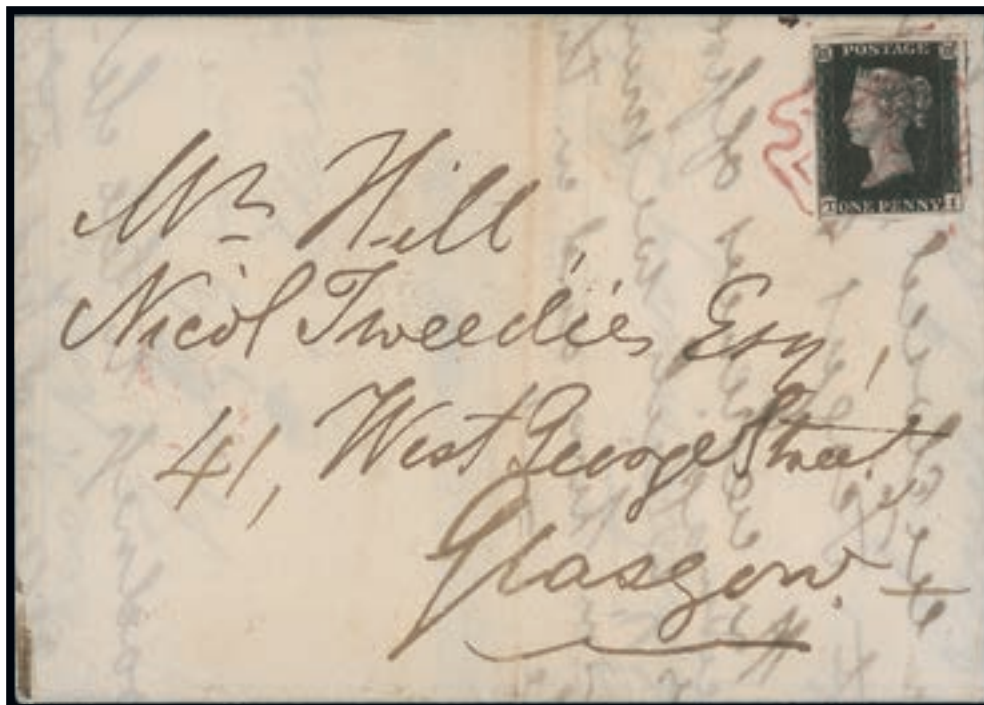 POSTAGE
T ONE PENNY I
Mr Hill
Nicol Tweedie's Esq,
41, West George Street
Glasgow.